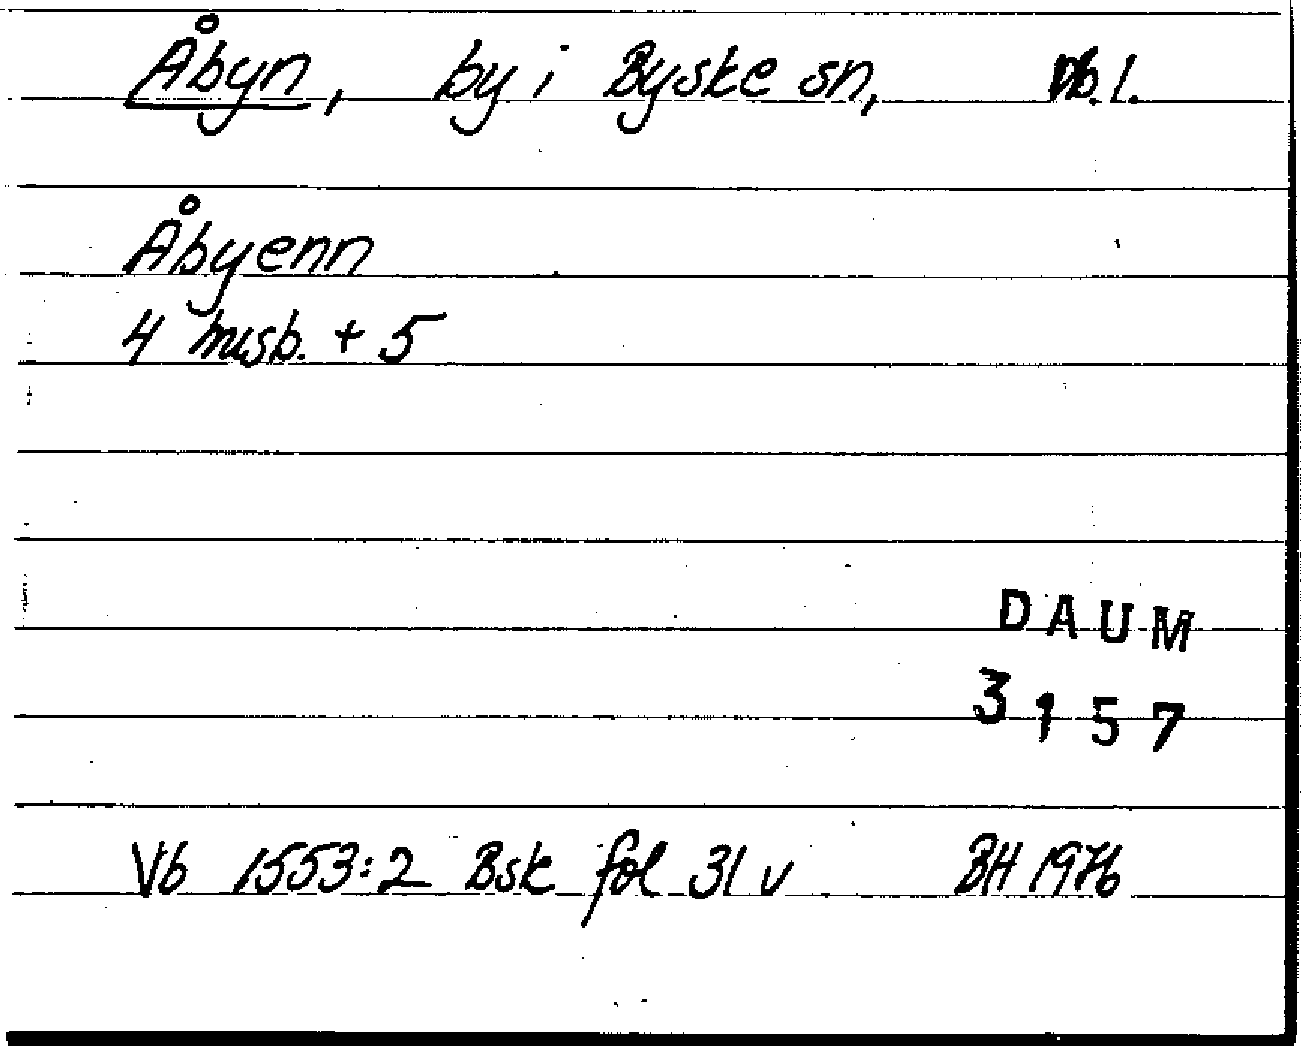 Åbyn, by i Byske sn, Vb. l.
Åbyenn
4 msb. + 5
DAUM
3157
Vb 1553:2 Bsk fol 31 v BH 1976